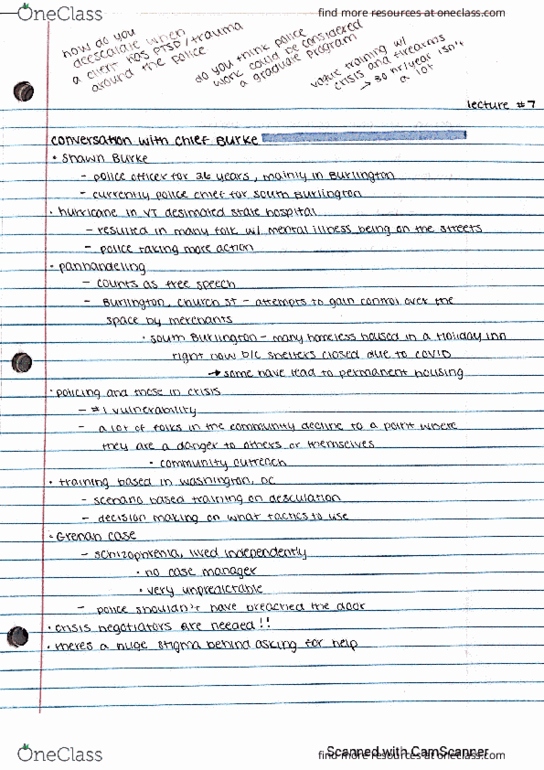 OneClass
find more resources at oneclass.com
how do you
deescalate when
a client has PTSD/trauma
around the police
do you think police
work could be considered
a graduate program
training w/
crisis and firearms
→ 30 hr/year isn't
a lot
lecture #7
conversation with chief Burke
• Shawn Burke
– police officer for 26 years, mainly in Burlington
– currently police chief for south Burlington
• hurricane in VT desimated state hospital
– resulted in many folk w/ mental illness being on the streets
– police taking more action
• panhandeling
– counts as free speech
– Burlington, church st – attempts to gain control over the
space by merchants
• south Burlington – many homeless housed in a Holiday inn
right now b/c shelters closed due to covid
→ some have lead to permanent housing
• policing and those in crisis
– #1 vulnerability
– a lot of folks in the community decline to a point where
they are a danger to others or themselves
• community outreach
• training based in washington, DC
– scenario based training on desculation
– decision making on what tactics to use
• Grenan case
– schizophrenia, lived independently
• no case manager
• very unpredictable
– police shouldn't have breached the door
• crisis negotiators are needed!!
• theres a huge stigma behind asking for help
Scanned with CamScanner
OneClass
find more resources at oneclass.com